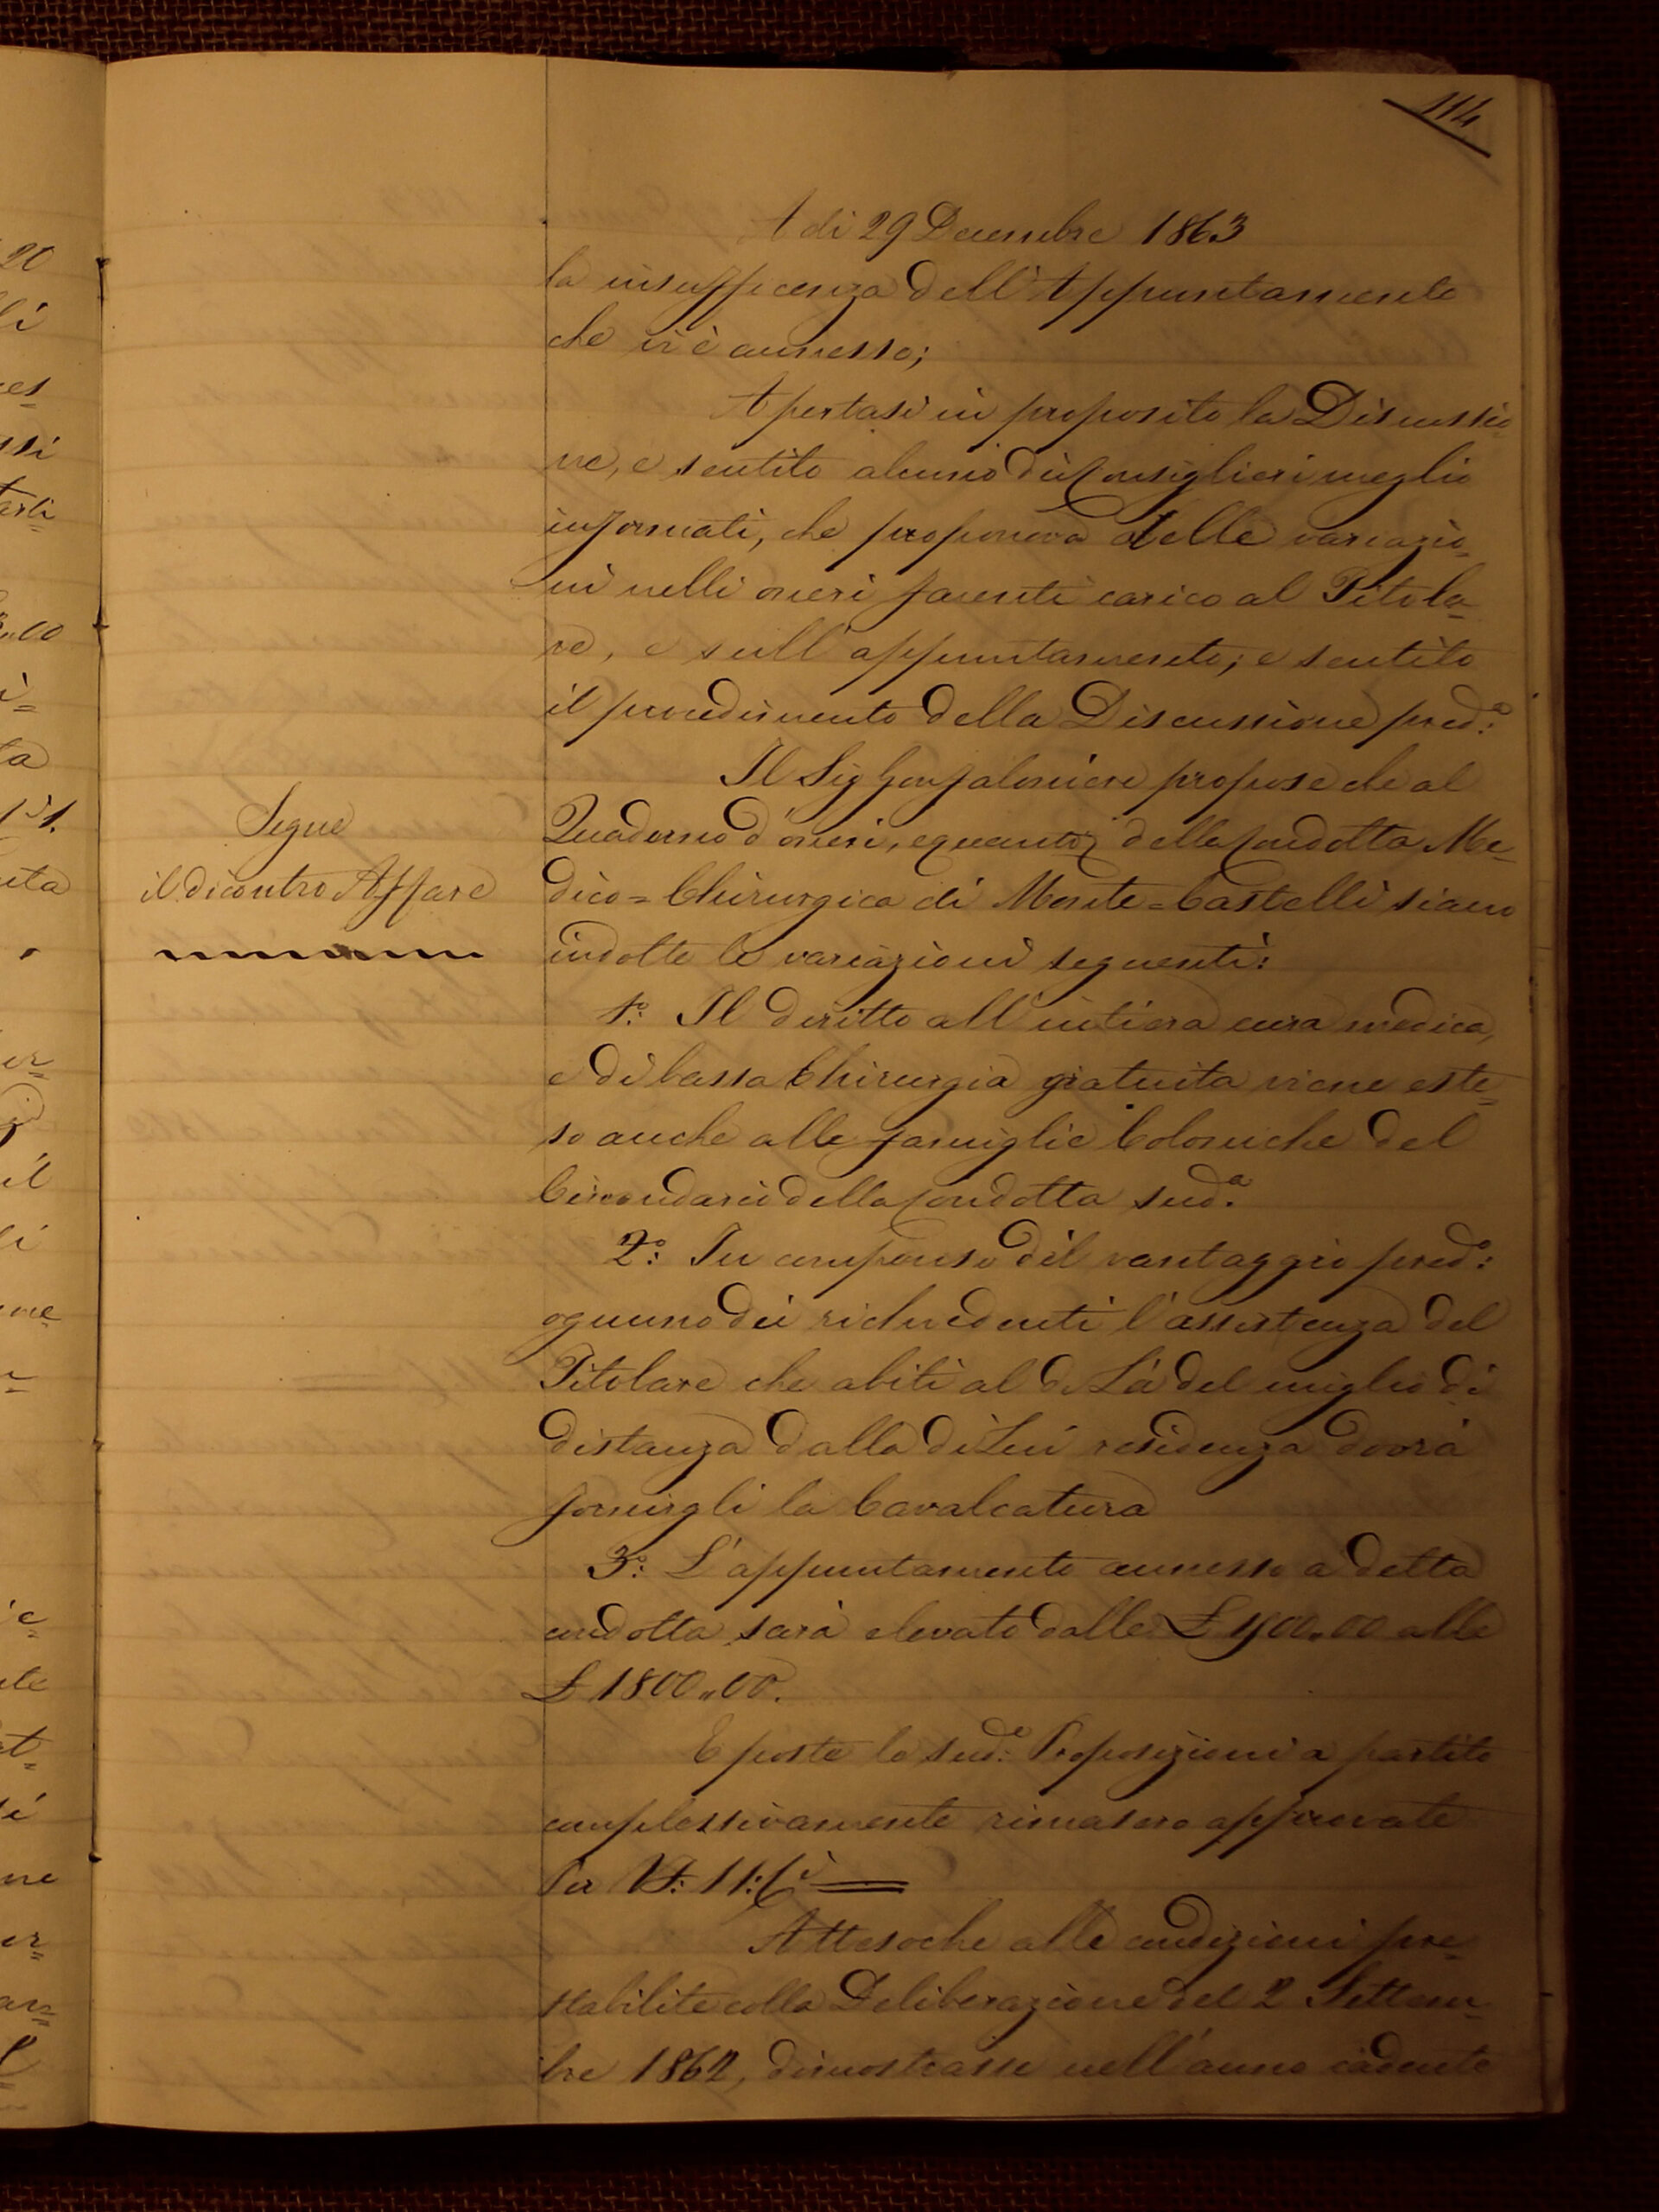 114
A di 29 Decembre 1863
la insufficenza dell'Appuntamento
che vi è annesso;
Apertasi in proposito la Discussio-
ne, e sentito alcuno dei Consiglieri meglio
informati, che proponeva delle variazio-
ni nelli oneri facenti carico al Titola-
re, e sull'appuntamento; e sentito
il procedimento della Discussione pred:a
Il Sig Gonfaloniere propose che al
Segue
il dicontro Affare
Quaderno d'oneri, della Condotta Me-
dico=Chirurgica di Monte=Castelli siano
indotte le variazioni seguenti:
1:o Il diritto all'intiera cura medica,
e di bassa Chirurgia gratuita viene este-
so anche alle famiglie Coloniche del
Circondario della Condotta sud.a
2:o In compenso del vantaggio pred:o
ognuno dei richiedenti l'assistenza del
Titolare che abiti al di Là del miglio di
distanza dalla di Lui residenza dovrà
fornirgli la Cavalcatura
3:o L'appuntamento annesso a detta
condotta sarà elevato dalle £ alle
£ 1800,,00.
E poste le sud:e Proposizioni a partito
complessivamente rimasero approvate
Per Vt: 11: Ci
Attesoche alle condizioni pre-
stabilite colla Deliberazione del 2 Settem-
bre 1862, dimostrasse nell'anno cadente
20
li
ssi
ta
il
me